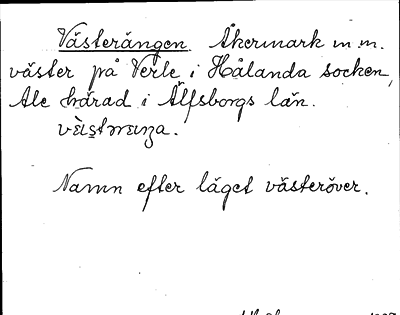 Västerängen Åkermark m.m.
väster på Verle i Hålanda socken,
Ale härad i Älfsborgs län.
Namn efter läget västeröver.